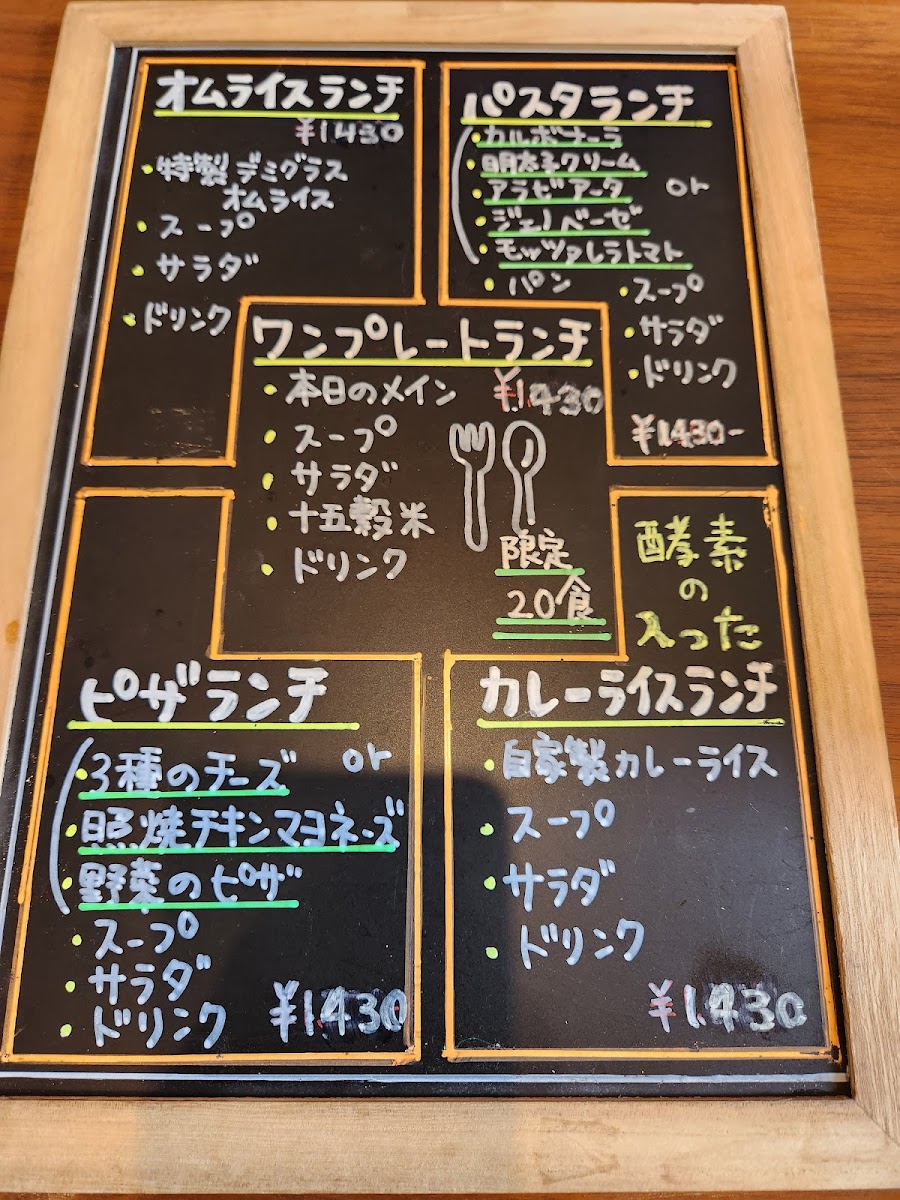 オムライスランチ
¥1430
・特製デミグラス
オムライス
・スープ
・サラダ
・ドリンク
パスタランチ
・カルボナーラ
・明太子クリーム
・アラビアータ or
・ジェノベーゼ
・モッツァレラトマト
・パン ・スープ
・サラダ
・ドリンク
¥1430-
ワンプレートランチ
・本日のメイン ¥1430
・スープ
・サラダ
・十五穀米
・ドリンク
限定
20食
ピザランチ
・3種のチーズ or
・照焼チキンマヨネーズ
・野菜のピザ
・スープ
・サラダ
・ドリンク ¥1430
酵素
の
入った
カレーライスランチ
・自家製カレーライス
・スープ
・サラダ
・ドリンク
¥1430